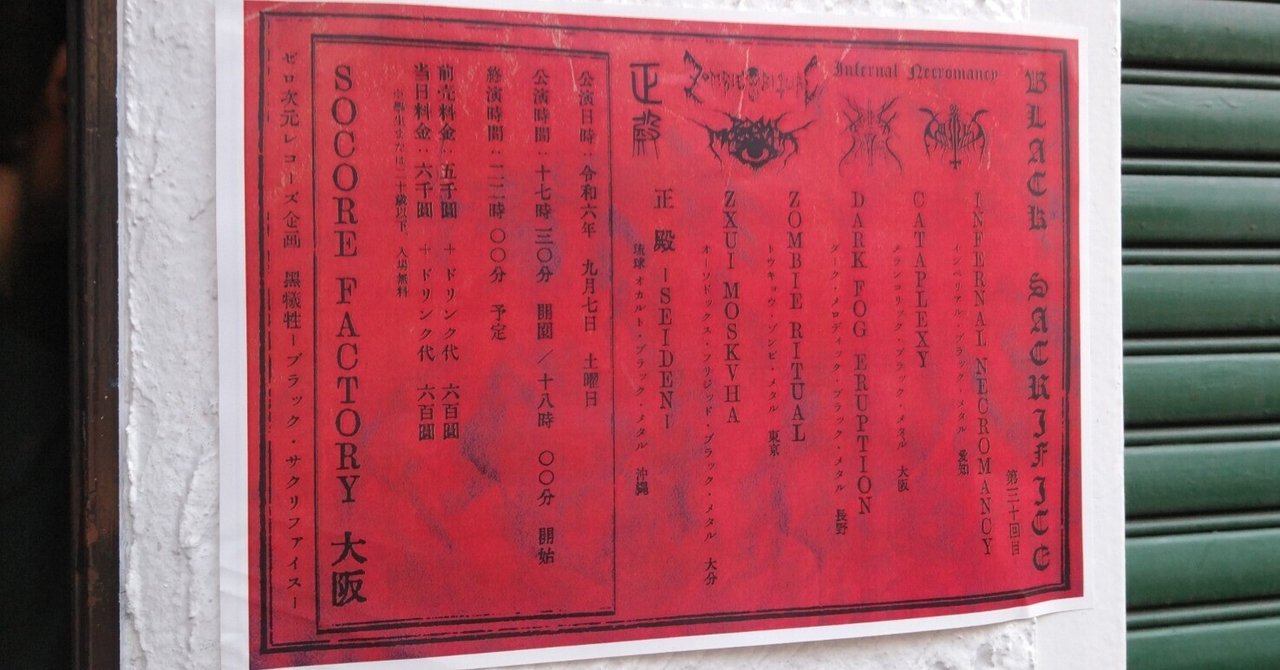 BLACK SACRIFICE
第三十回目
Infernal Necromancy
INFERNAL NECROMANCY
インペリアル・ブラック・メタル 愛知
CATAPLEXY
メランコリック・ブラック・メタル 大阪
DARK FOG ERUPTION
ダーク・メロディック・ブラック・メタル 長野
ZOMBIE RITUAL
ZOMBIE RITUAL
トウキョウ・ゾンビ・メタル 東京
ZXUI MOSKVHA
オーソドックス・フリジッド・ブラック・メタル 大分
正殿
正殿 ーSEIDENー
琉球オカルト・ブラック・メタル 沖縄
公演日時:令和六年 九月七日 土曜日
公演時間:十七時三〇分 開園/十八時 〇〇分 開始
終演時間:二二時〇〇分 予定
前売料金:五千圓 + ドリンク代 六百圓
当日料金:六千圓 + ドリンク代 六百圓
※學生または二十歳以下、入場無料
SOCORE FACTORY 大阪
ゼロ次元レコーズ企画 黒犠牲ーブラック・サクリファイスー